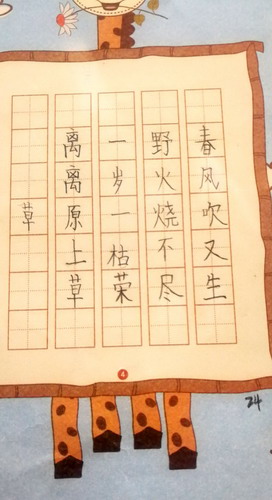 草
离离原上草
一岁一枯荣
野火烧不尽
春风吹又生
4
24